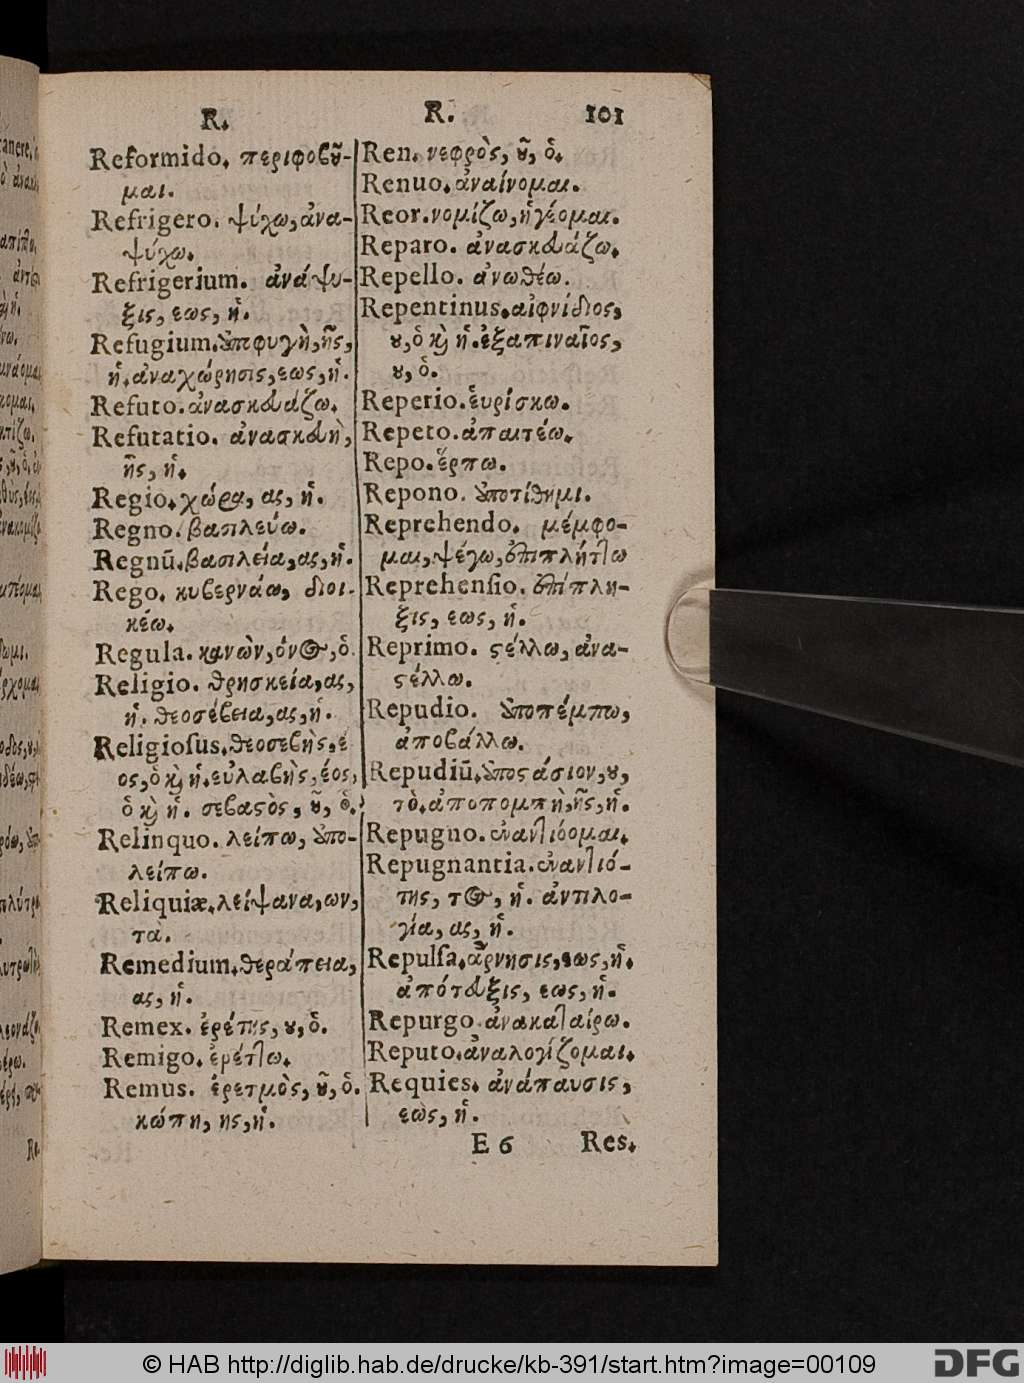 R.
Reformido. περιφοβοῦ-
μαι.
Refrigero. ψύχω, ἀνα-
ψύχω.
Refrigerium. ἀνάψυ-
ξις, εως, ἡ.
Refugium. ὑποφυγὴ, ῆς,
ἡ. ἀναχώρησις, εως, ἡ.
Refuto. ἀνασκευάζω.
Refutatio. ἀνασκευὴ,
ῆς, ἡ.
Regio. χώρα, ας, ἡ.
Regno. βασιλεύω.
Regnū. βασιλεία, ας, ἡ.
Rego. κυβερνάω, διοι-
κέω.
Regula. κανὼν, όνος, ὁ.
Religio. θρησκεία, ας,
ἡ. θεοσέβεια, ας, ἡ.
Religiosus. θεοσεβὴς, έ
ος, ὁ καὶ ἡ. εὐλαβὴς, έος,
ὁ καὶ ἡ. σεβαστὸς, οῦ, ὁ.
Relinquo. λείπω, ὑπο-
λείπω.
Reliquiæ. λείψανα, ων,
τὰ.
Remedium. θεράπεια,
ας, ἡ.
Remex. ἐρέτης, ου, ὁ.
Remigo. ἐρέττω.
Remus. ἐρετμὸς, οῦ, ὁ.
κώπη, ης, ἡ.
R. 101
Ren. νεφρὸς, οῦ, ὁ.
Renuo. ἀναίνομαι.
Reor. νομίζω, ἡγέομαι.
Reparo. ἀνασκευάζω.
Repello. ἀνωθέω.
Repentinus. αἰφνίδιος,
ου, ὁ καὶ ἡ. ἐξαπιναῖος,
ου, ὁ.
Reperio. εὑρίσκω.
Repeto. ἀπαιτέω.
Repo. ἕρπω.
Repono. ὑποτίθημι.
Reprehendo. μέμφο-
μαι, ψέγω, ἐπιπλήττω
Reprehensio. ἐπίπλη-
ξις, εως, ἡ.
Reprimo. στέλλω, ἀνα-
στέλλω.
Repudio. ὑποπέμπω,
ἀποβάλλω.
Repudiū. ὑποστάσιον, ου,
τὸ. ἀποπομπὴ, ῆς, ἡ.
Repugno. ἐναντιόομαι.
Repugnantia. ἐναντιό-
της, τος, ἡ. ἀντιλο-
γία, ας, ἡ.
Repulsa. ἄρνησις, εως, ἡ.
ἀπότευξις, εως, ἡ.
Repurgo. ἀνακαταίρω.
Reputo. ἀναλογίζομαι.
Requies. ἀνάπαυσις,
εως, ἡ.
E 6 Res.
© HAB http://diglib.hab.de/drucke/kb-391/start.htm?image=00109
DFG